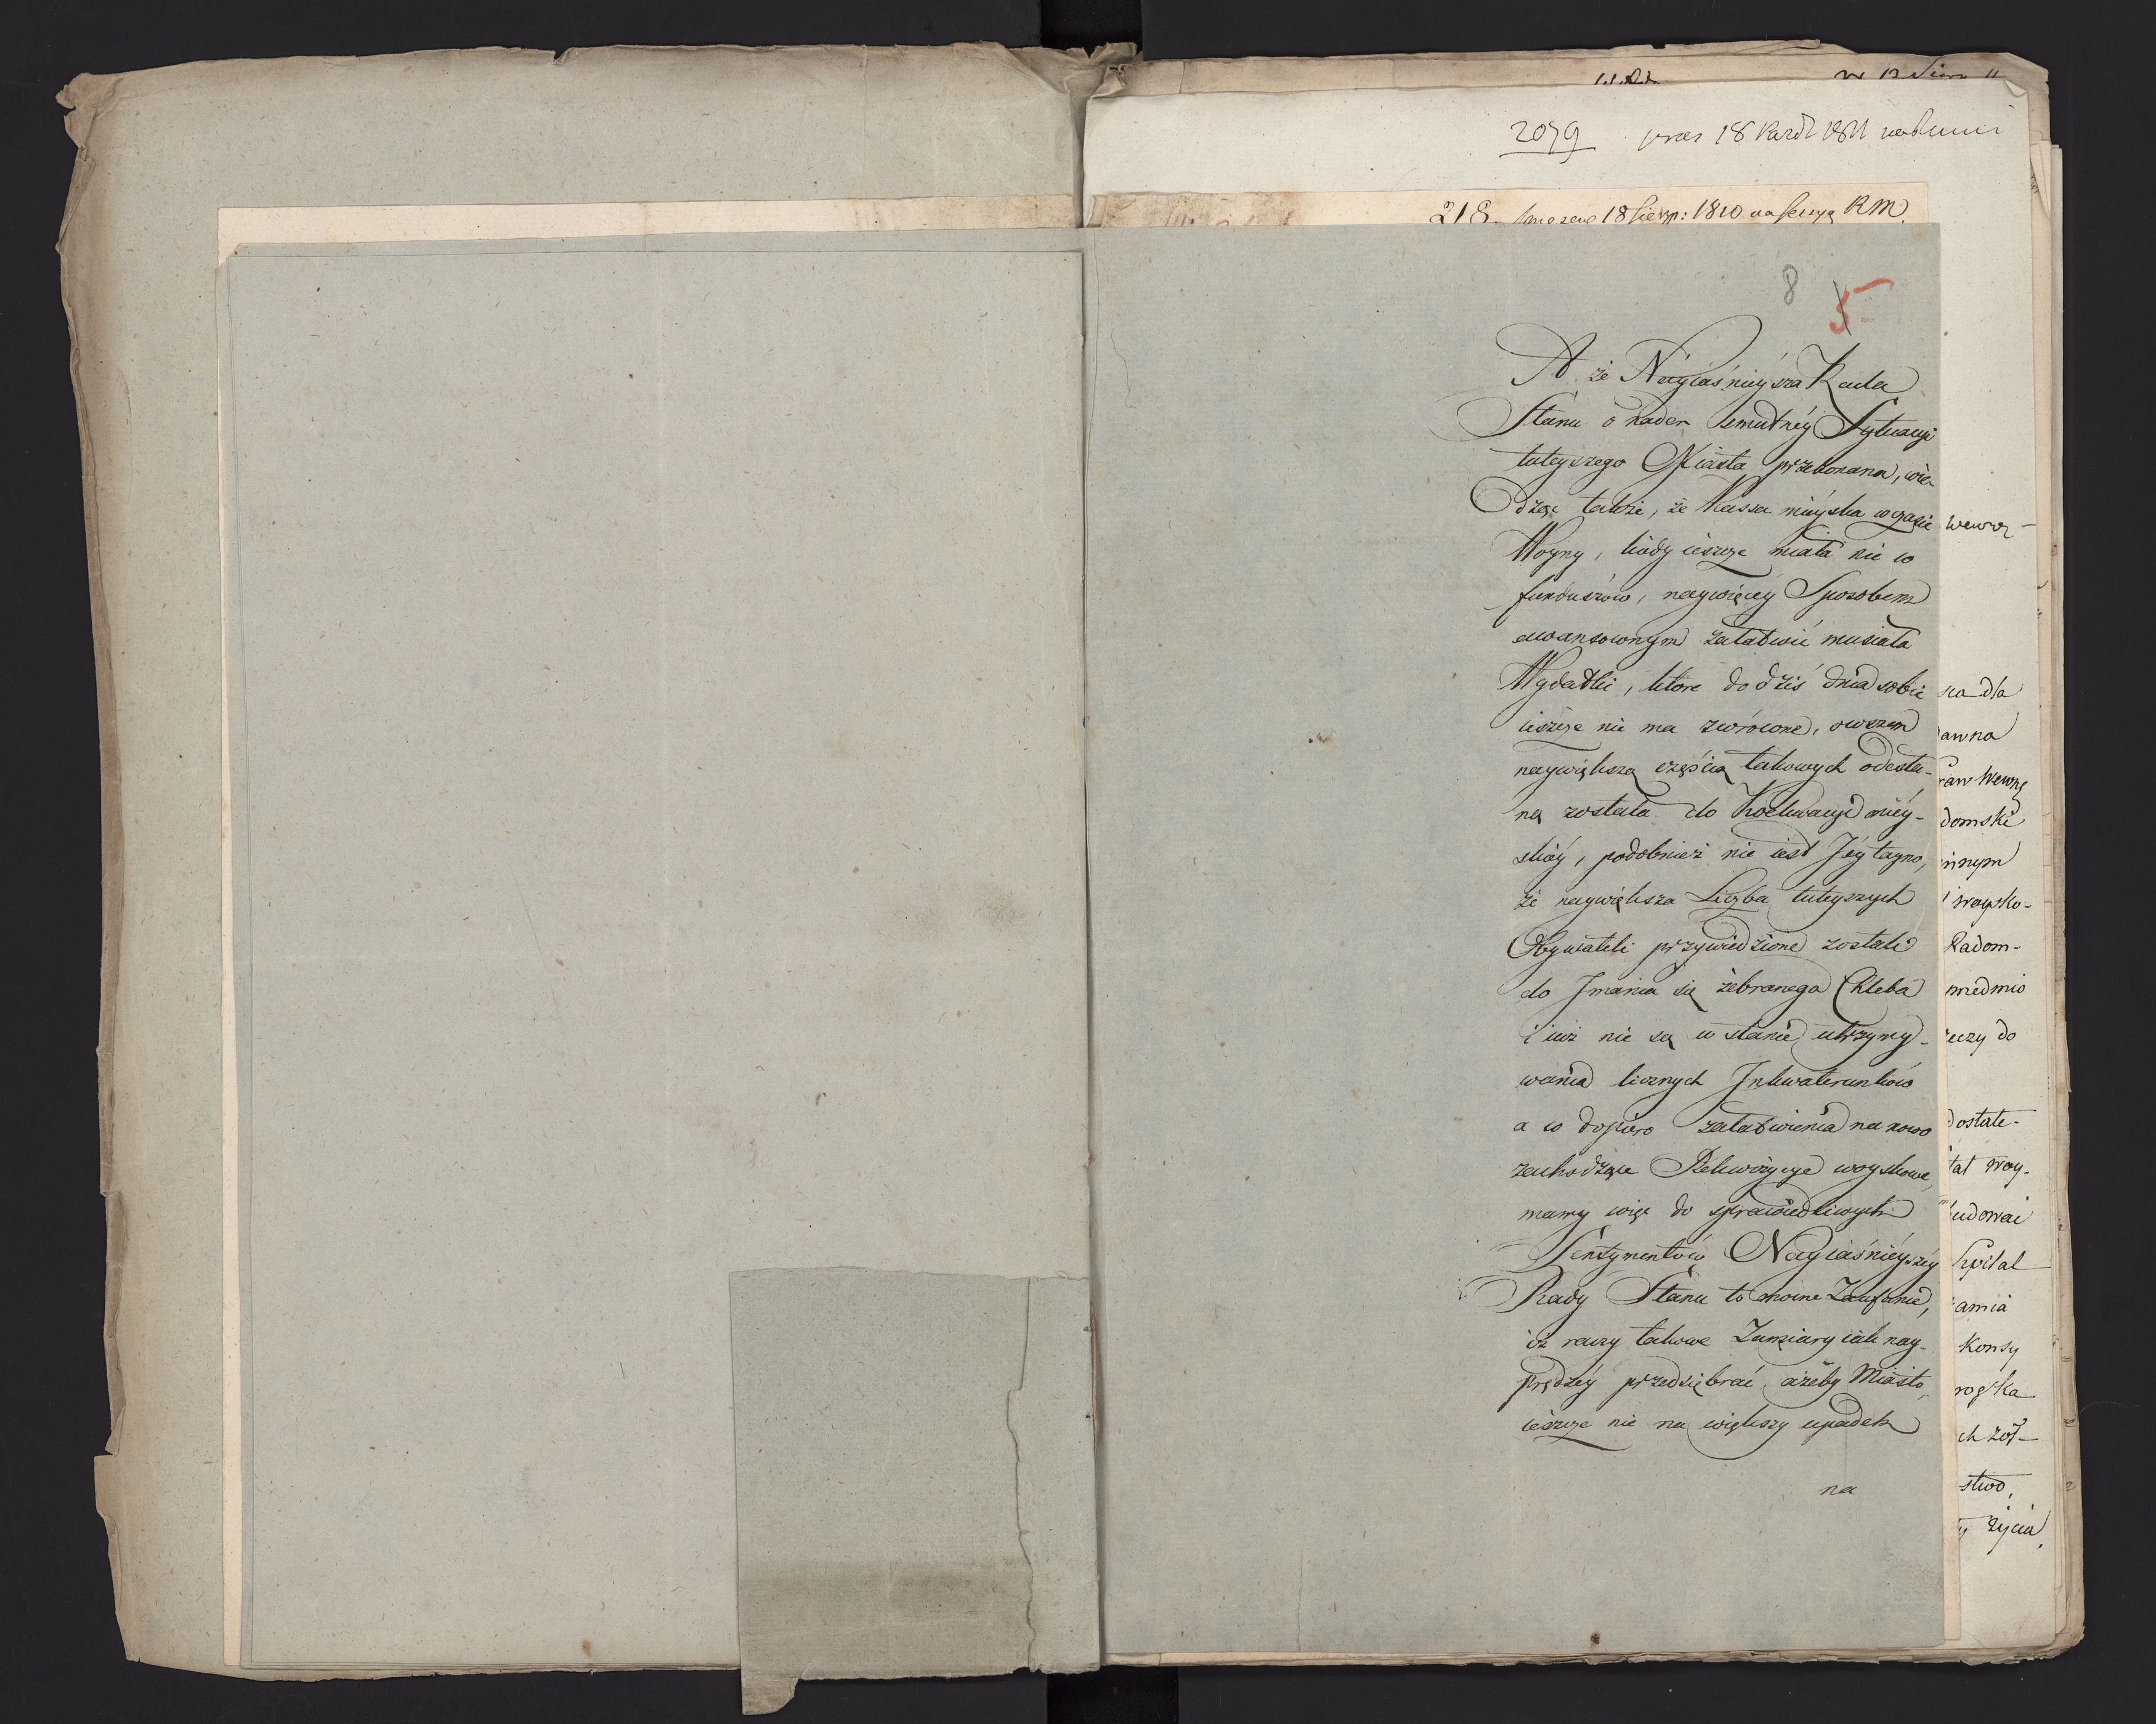 2079 18 1811
218 18 Sierp: 1810 na Sessyą RM.
8 5
A że Nayiaśnieysza Rada
Stanu o nader smutney Sytuacyi
tuteyszego Miasta przekonana, wie-
dząc także, że Kassa mieyska w czasie
Woyny, kiedy ieszcze miała nie co
funduszów, naywięcey Sposobem
awansownym załatwić musiała
Wydatki, które do dziś dnia sobie
ieszcze nie ma zwrócone, owszem
naywiększą częścią takowych odesła-
ną została do Koekwacyi miey-
skiey, podobnież nie iest Jey tayno,
że naywiększa Liczba tuteyszych
Obywateli przywiedzione zostali
do Jmania się żebranego Chleba
i iuż nie są w stanie utrzymy-
wania licznych Inkwaterunków
a co dopiero załatwienia na nowo
zachodzące Rekwizycye woyskowe,
mamy więc do sprawiedliwych
Sentymentów Nayiaśnieyszey
Rady Stanu to mocne Zaufanie,
iż raczy takowe Zamiary iak nay-
prędzey przedsiębrać, ażeby Miasto
ieszcze nie na większy upadek
na
wewnę-
na dla
dawna
raw Wewnę
domski
innym
woysko-
Radom-
medmio
reczy do
dostate-
tat woy-
udować
Szpital
amia
Konsy
rogska
ch żoł-
stwo,
y życia,